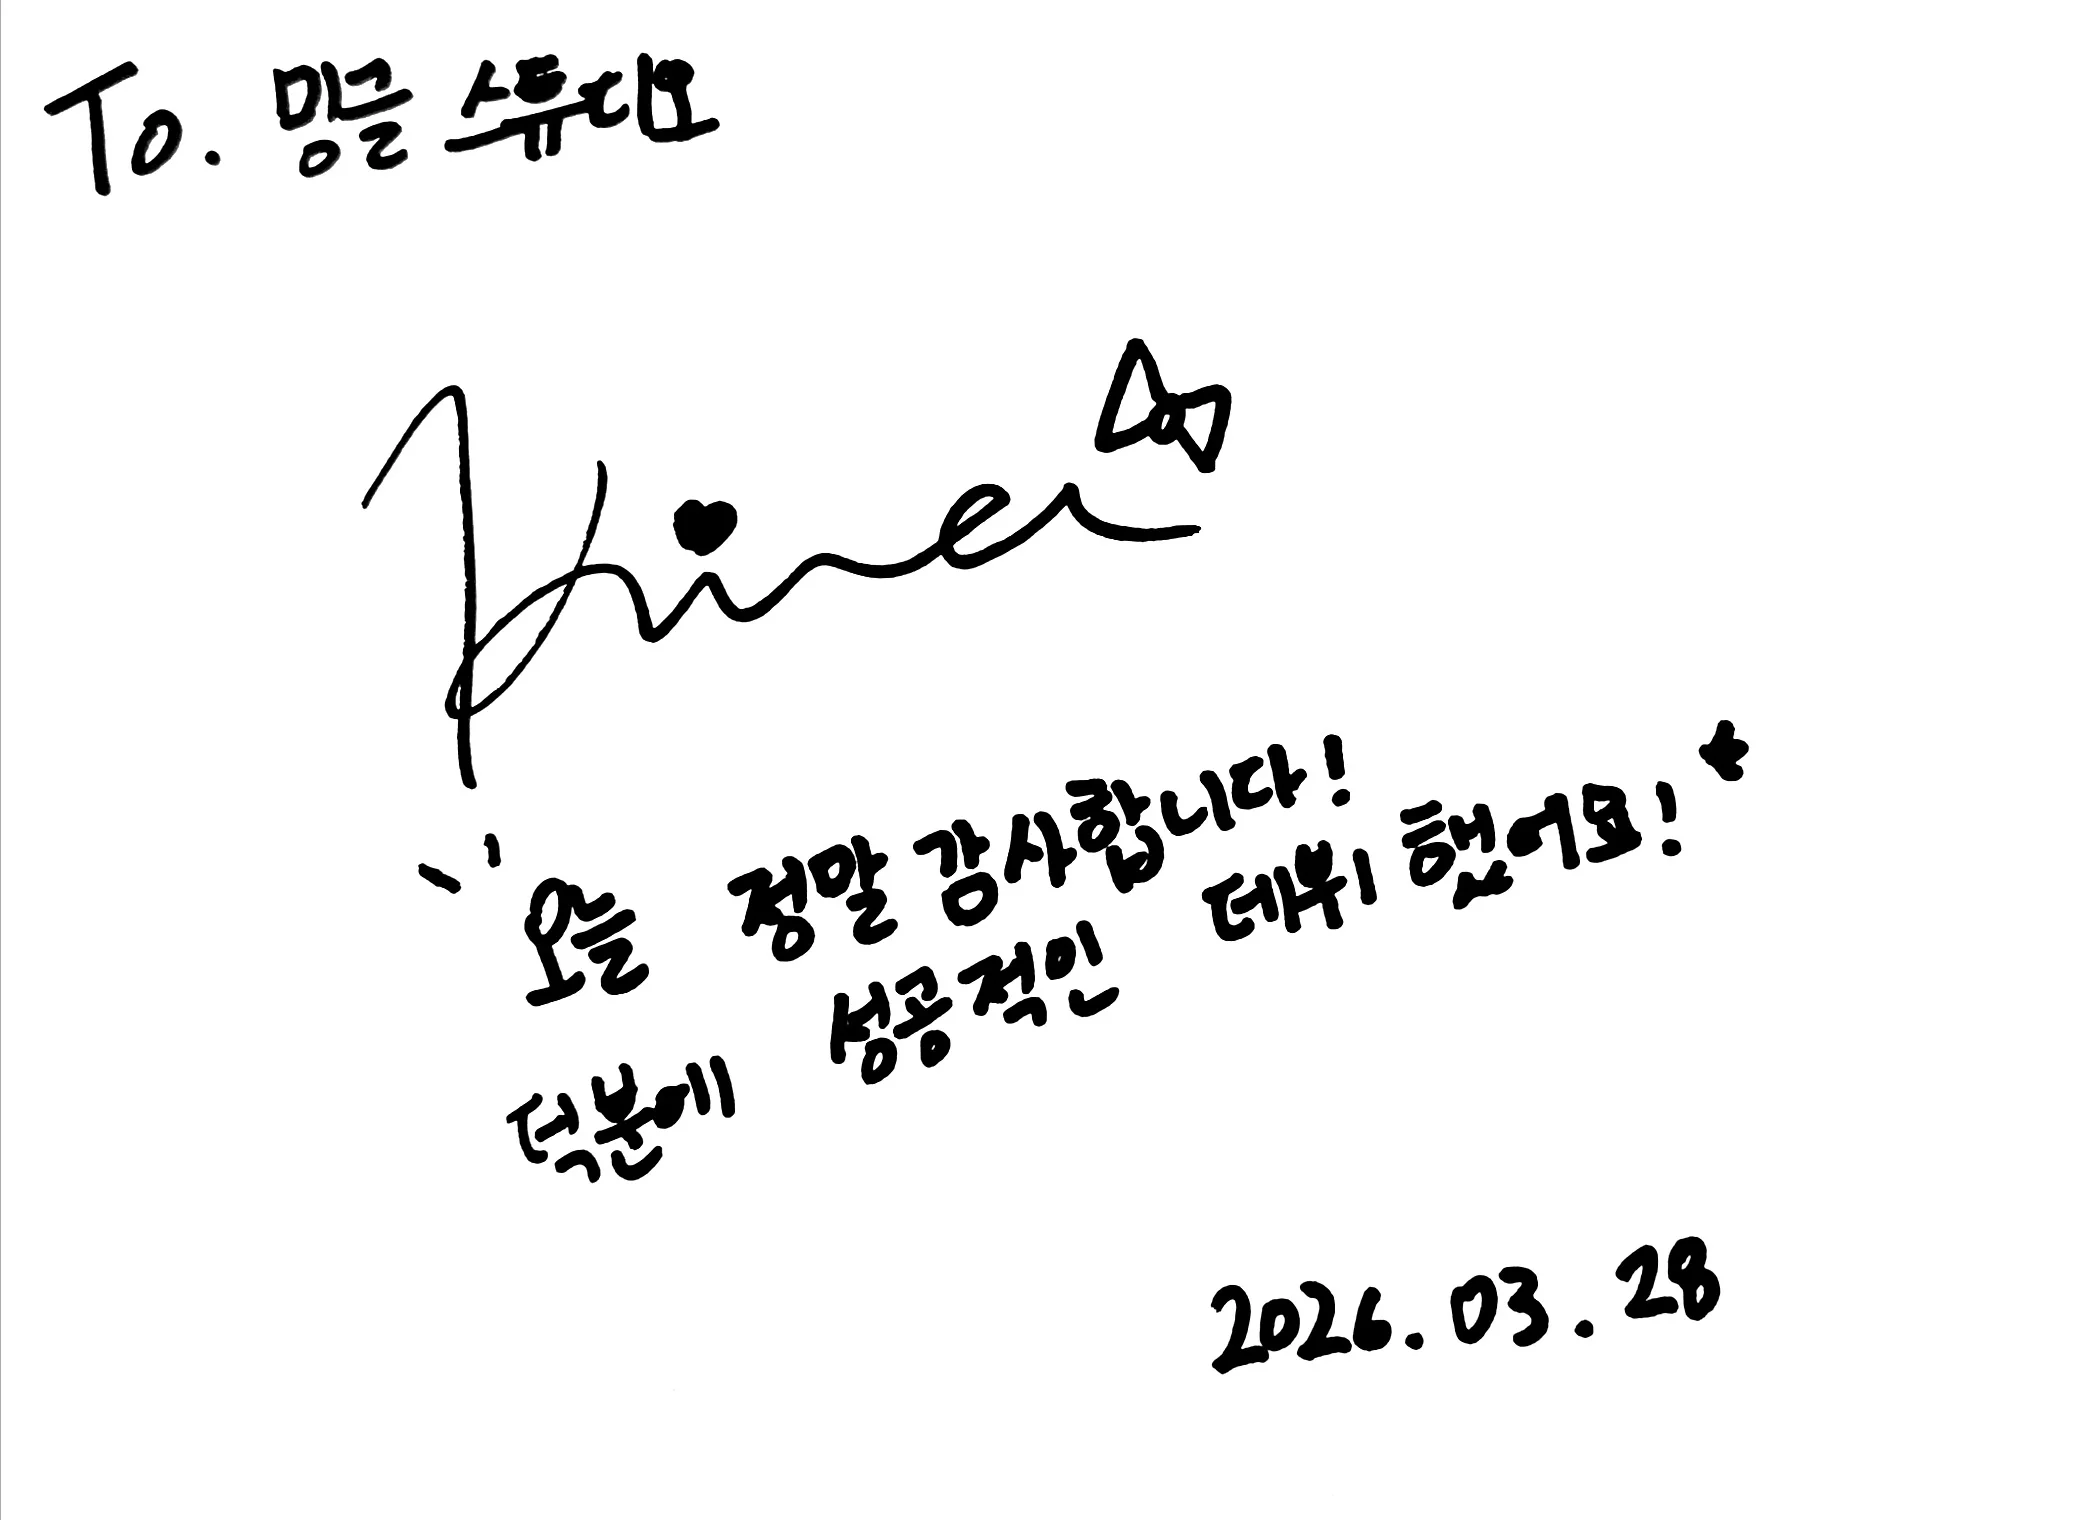 To. 밍글 스튜디오
Kinex
오늘 정말 감사합니다!
덕분에 성공적인 데뷔 했어요!
2026.03.28